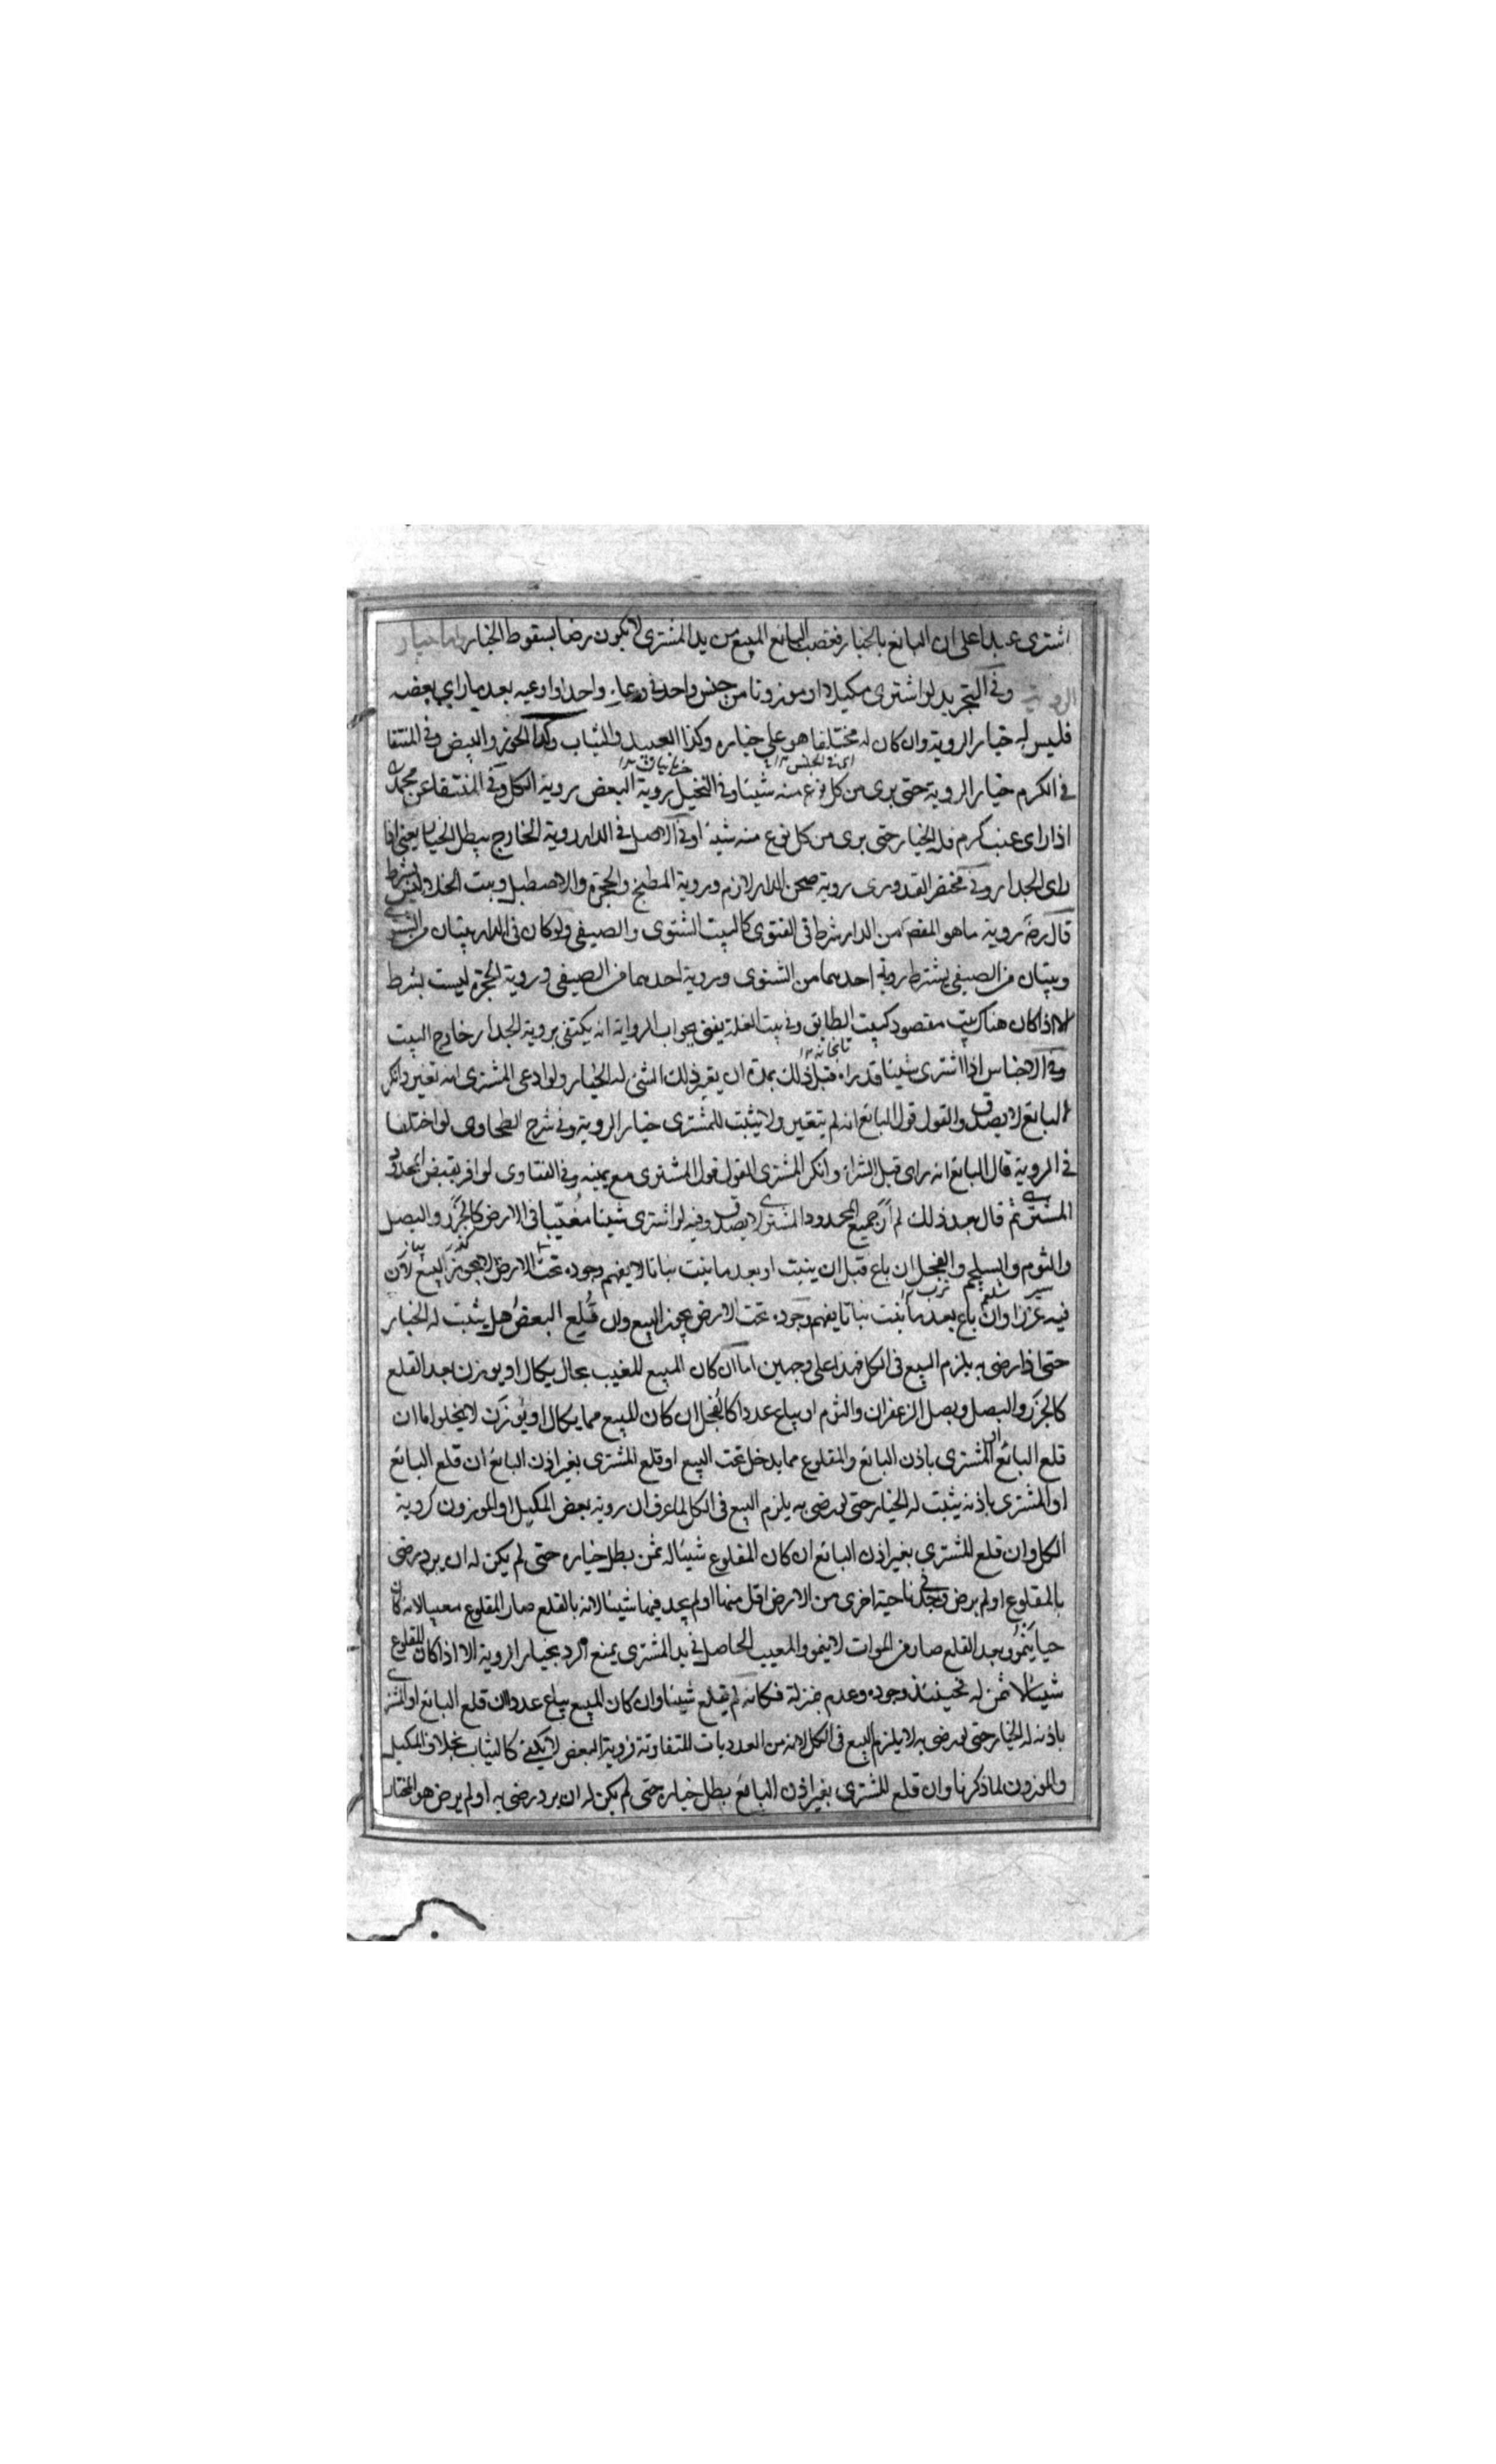 اشترى عبدا على ان البائع بالخيار فغصب البائع المبيع من يد المشترى لا يكون رضا بسقوط الخيار
الروية وفي التجريد لو اشترى مكيلا او موزونا من جنس واحد في وعاء واحد او اوعيه بعد ما راي بعضه
فليس له خيار الروية وان كان له مختلفا هو على خياره وكذا العبيد والثياب وكذا الجوز والبيض وفي المنتقا
اى فى الجنس
في الكرم خيار الروية حتى يرى من كل نوع منه شيئا وفي النخيل روية البعض روية الكل وفي المنتقا عن محمد
اذا راى عنب كرم فله الخيار حتى يرى من كل نوع منه شيئا وفي الاصل في الدار روية الخارج يبطل الخيار يعني اذا
راى الجدار وفي مختصر القدورى روية صحن الدار لازم وروية المطبخ والحجرة والاصطبل وبيت الخلا ليس بشرط
قال رضه روية ما هو المقص من الدار شرط في الفتوى كالبيت الشتوى والصيفى ولو كان فى الدار بيتان من الشتوى
وبيتان من الصيفى يشترط روية احدهما من الشتوى وروية احدهما من الصيفى وروية الحجرة ليست بشرط
الا اذا كان هناك بيت مقصود كبيت الطابق وفي بيت الغلة يفتى بجواب الرواية انه يكتفى بروية الجدار خارج البيت
وفي الاجناس اذا اشترى شيئا قد راه قبل ذلك بمدة ان يغير ذلك الشئ له الخيار ولو ادعى المشترى انه تغير وانكر
البائع لا يصدق والقول قول البائع انه لم يتغير ولا يثبت للمشترى خيار الروية وفي شرح الطحاوى لو اختلفا
في الروية قال البائع انه راى قبل الشراء وانكر المشترى القول قول المشترى مع يمينه وفي الفتاوى لو اقر بقبض المحدود
المشترى ثم قال بعد ذلك لم ار جميع المحدود المشترى لا يصدق وفيه لو اشترى شيئا مغيبا فى الارض كالجزر والبصل
كزر پياز
والثوم والسلجم والفجل ان باع قبل ان ينبت او بعد ما ينبت نباتا لا يفهم وجوده تحت الارض لا يجوز البيع لان
سير شلغم ترب
فيه غررا وان باع بعد ما نبت نباتا يفهم وجوده تحت الارض يجوز البيع وان قلع البعض هل يثبت له الخيار
حتى اذا رضى به يلزم البيع فى الكل فهذا على وجهين اما ان كان المبيع المغيب بحال يكال او يوزن بعد القلع
كالجزر والبصل وبصل الزعفران والثوم او يباع عددا كالفجل ان كان المبيع مما يكال او يوزن لا يخلوا اما ان
قلع البائع او المشترى باذن البائع والمقلوع مما يدخل تحت البيع او قلع المشترى بغير اذن البائع ان قلع البائع
او المشترى باذنه يثبت له الخيار حتى لو رضى به يلزم البيع فى الكل لما عرف ان روية بعض المكيل او الموزون كروية
الكل وان قلع المشترى بغير اذن البائع ان كان المقلوع شيئا له ثمن بطل خياره حتى لم يكن له ان يرد رضى
بالمقلوع او لم يرض وجد في ناحية اخرى من الارض اقل منها او لم يجد فيها شيئا لانه بالقلع صار المقلوع معيبا لانه كان
حيا ينمو وبعد القلع صار من الموات لا ينمو والمعيب الحاصل في يد المشترى يمنع الرد بخيار الروية الا اذا كان المقلوع
شيئا لا ثمن له فحينئذ وجوده وعدم منزلة فكانه لم يقلع شيئا وان كان المبيع يباع عددا ان قلع البائع او المشترى
باذنه له الخيار حتى لو رضى به لا يلزم البيع فى الكل لانه من العدديات المتفاوتة فروية البعض لا يكفى كالثياب بخلاف المكيل
والموزون لما ذكرنا وان قلع المشترى بغير اذن البائع بطل خياره حتى لم يكن له ان يرد رضى به او لم يرض هو المختار